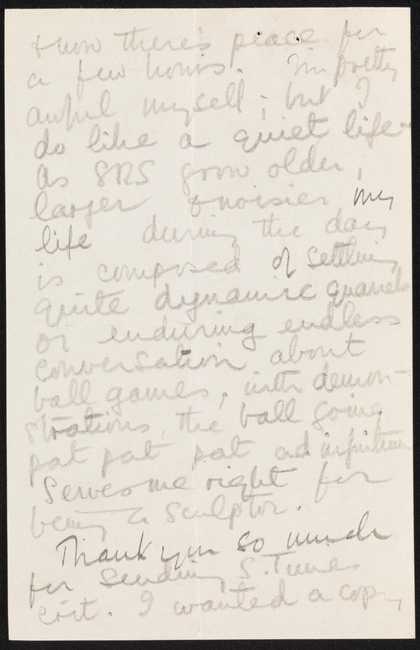 & now there's peace for
a few hours. I'm pretty
awful myself; but I
do like a quiet life -
as SRS grow older,
larger & noisier, my
life during the day
is composed of settling
quite dynamic quarrels
or enduring endless
conversation about
ball games, with demon-
strations, the ball going
pat pat pat ad infinitum
Serves me right for
being a sculptor.
Thank you so much
for sending S. Times
crit. I wanted a copy